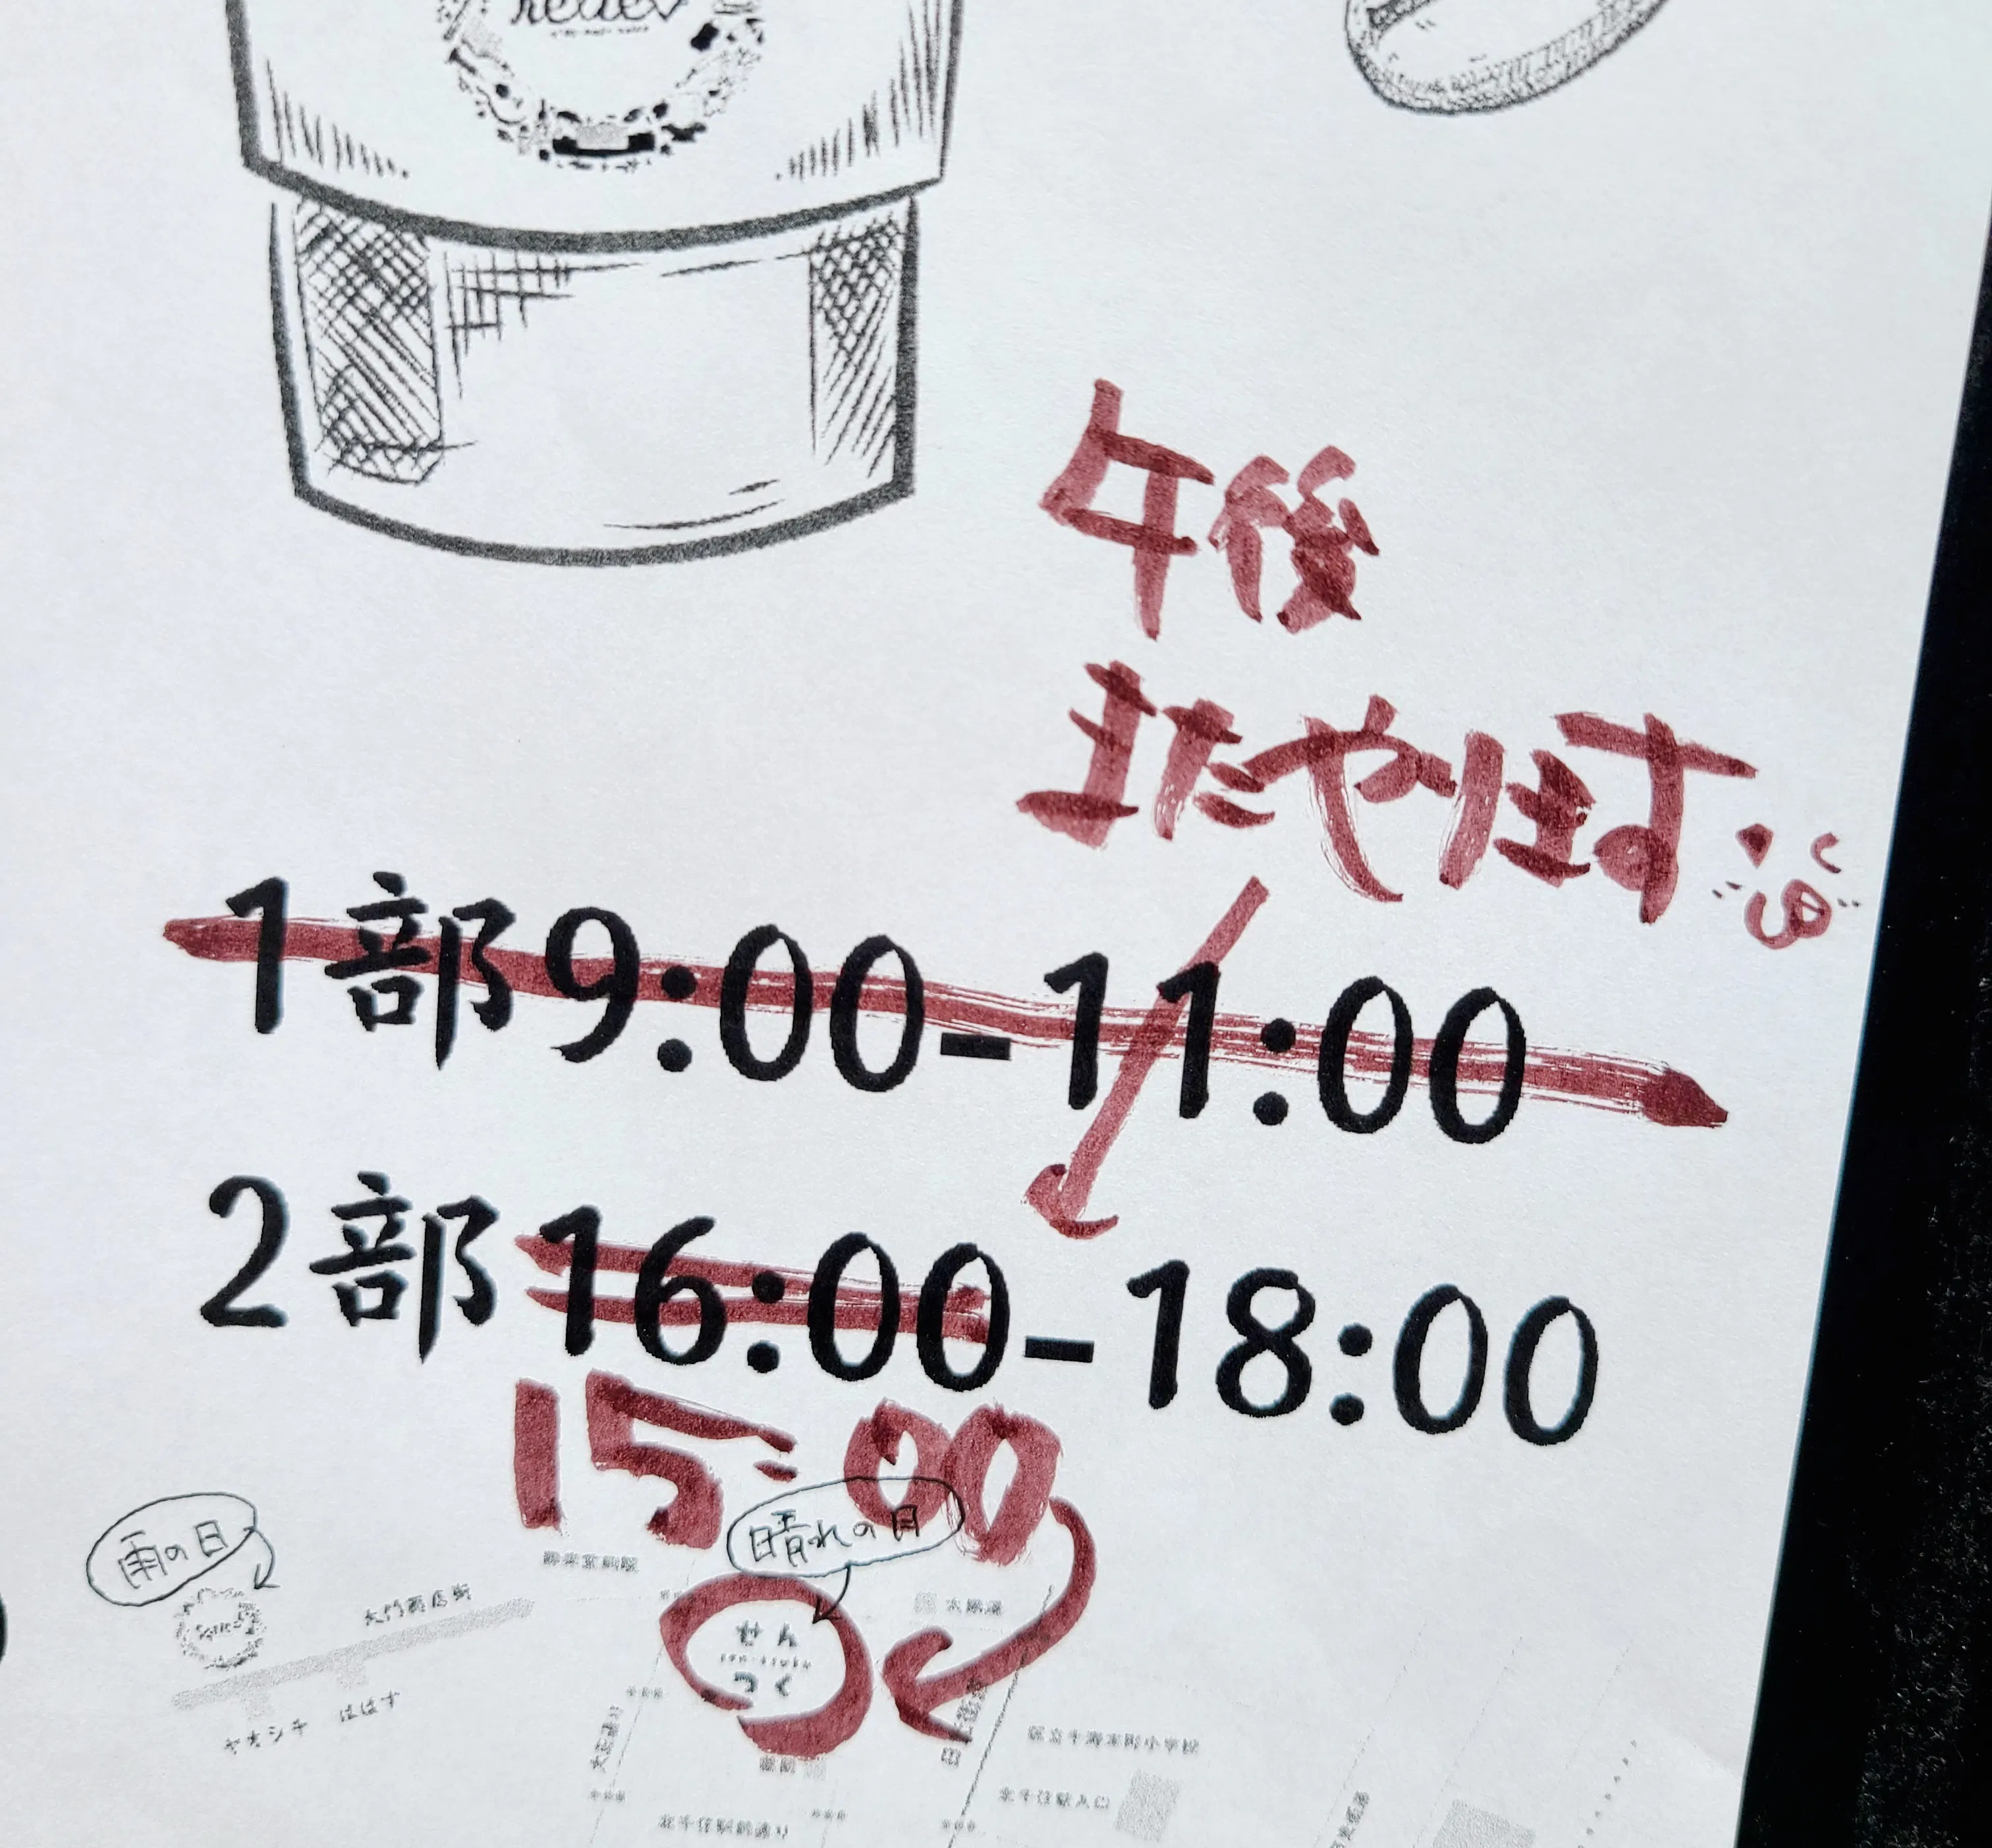 午後
またやります
1部9:00-11:00
2部16:00-18:00
15:00
雨の日
晴れの日
大門商店街
せん
つく
ヤオシチ ははす
区立千寿本町小学校
北千住駅入口
北千住駅前通り